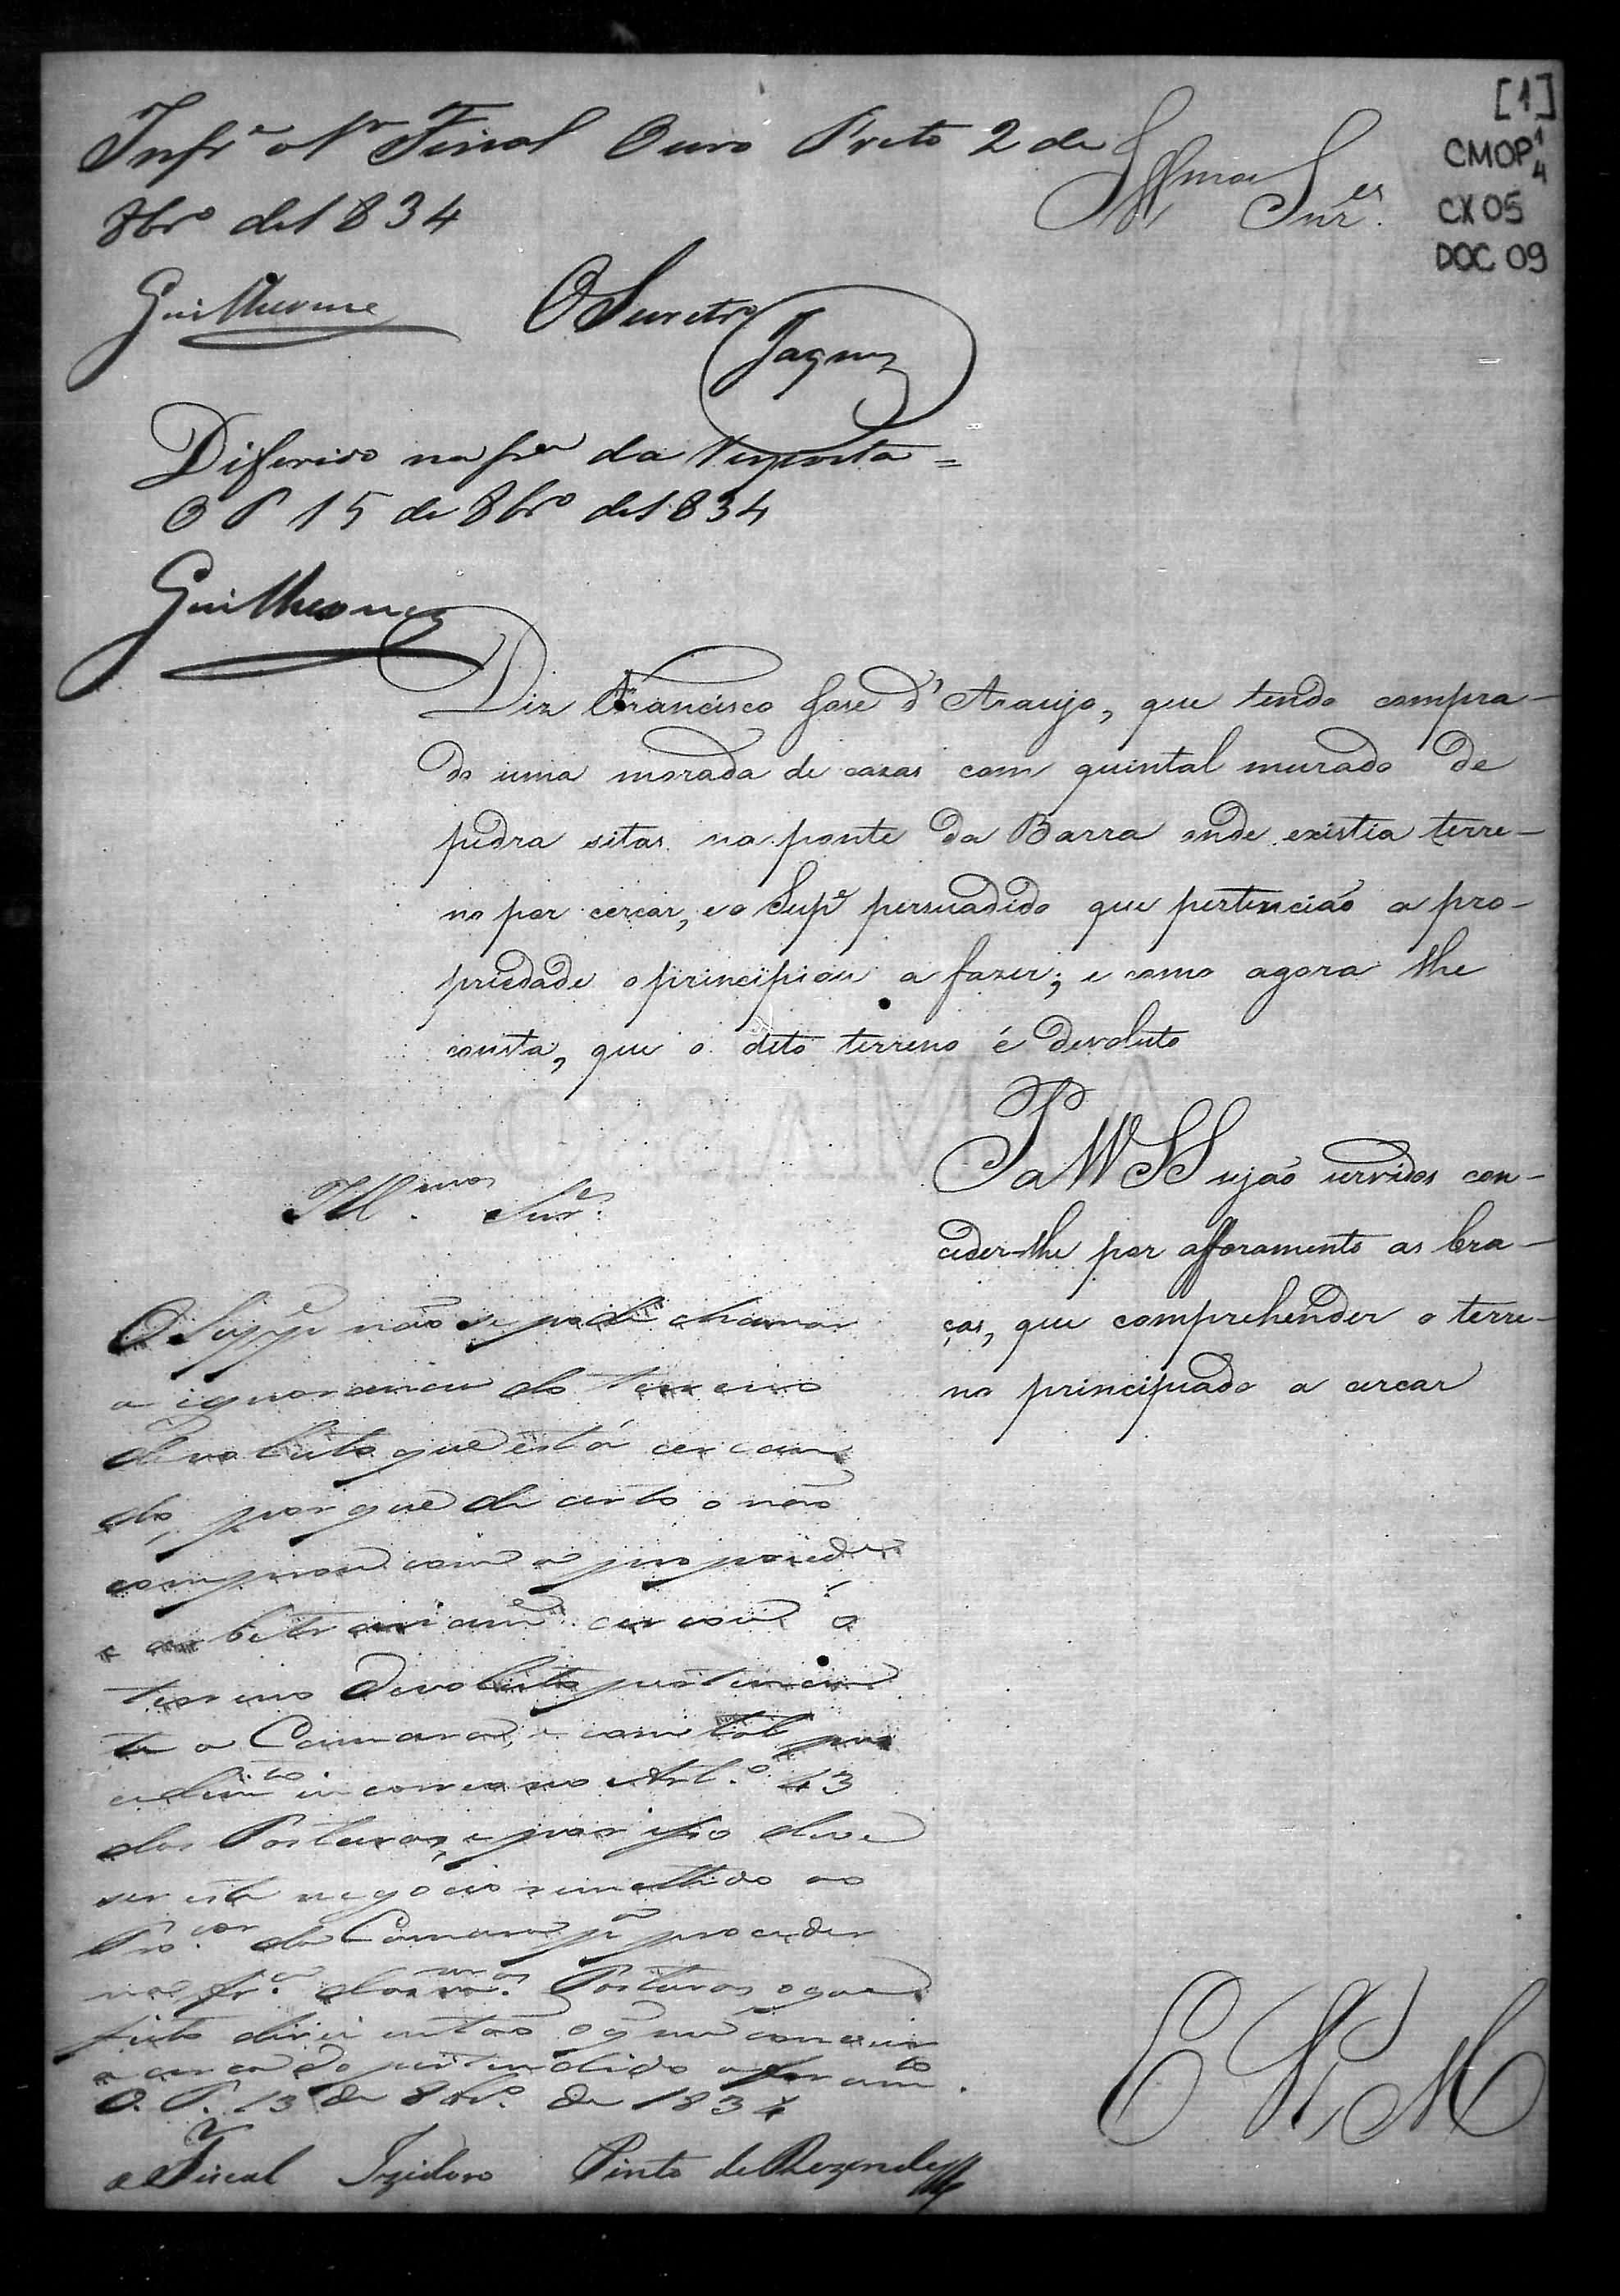 [1]
CMOP 1/4
CX 05
DOC 09
Infe o Sr Fiscal Ouro Preto 2 de
8bro de 1834
Guilherme O Secretro
Jaques
Illmos Snres.
Diferido na fra da resposta =
O P 15 de 8bro de 1834
Guilherme
Diz Francisco Jose d'Araujo, que tendo compra-
do uma morada de cazas com quintal murado de
pedra sitas na ponte da Barra onde existia terre-
no por cercar, e o Supe persuadido que pertencião a pro-
priedade o principiou a fazer; e como agora lhe
consta, que o dito terreno é devoluto
P a VV SS sejão servidos con-
ceder-lhe por afforamento as bra-
ças, que comprehender o terre-
no principiado a cercar
E R M
Illmos. Snres.
O Suppe não se pode chamar
a ignorancia do terreno
devoluto que está cercan
do, porque de certo o não
comprou com a propried.e
e arbitrariame cercou o
terreno devoluto pertencen
te a Camara, e com tal pro
cedimto incorreo no Art.o 43
das Posturas, e por isso deve
ser este negocio remettido ao
Pro.cor da Camara pa proceder
na fr.a das mmas. Posturas, o que
feito direi então o que convier
a cerca do pertendido aforamto.
O. P. 13 de 8bro. de 1834
o Fiscal Izidoro Pinto de Rezende